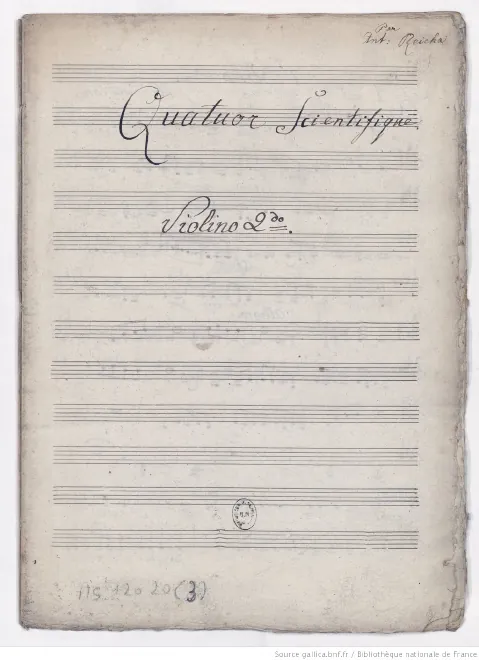 Par
Ant: Reicha
Quatuor Scientifique.
Violino 2do.
MS 12020(3)
Source gallica.bnf.fr / Bibliothèque nationale de France